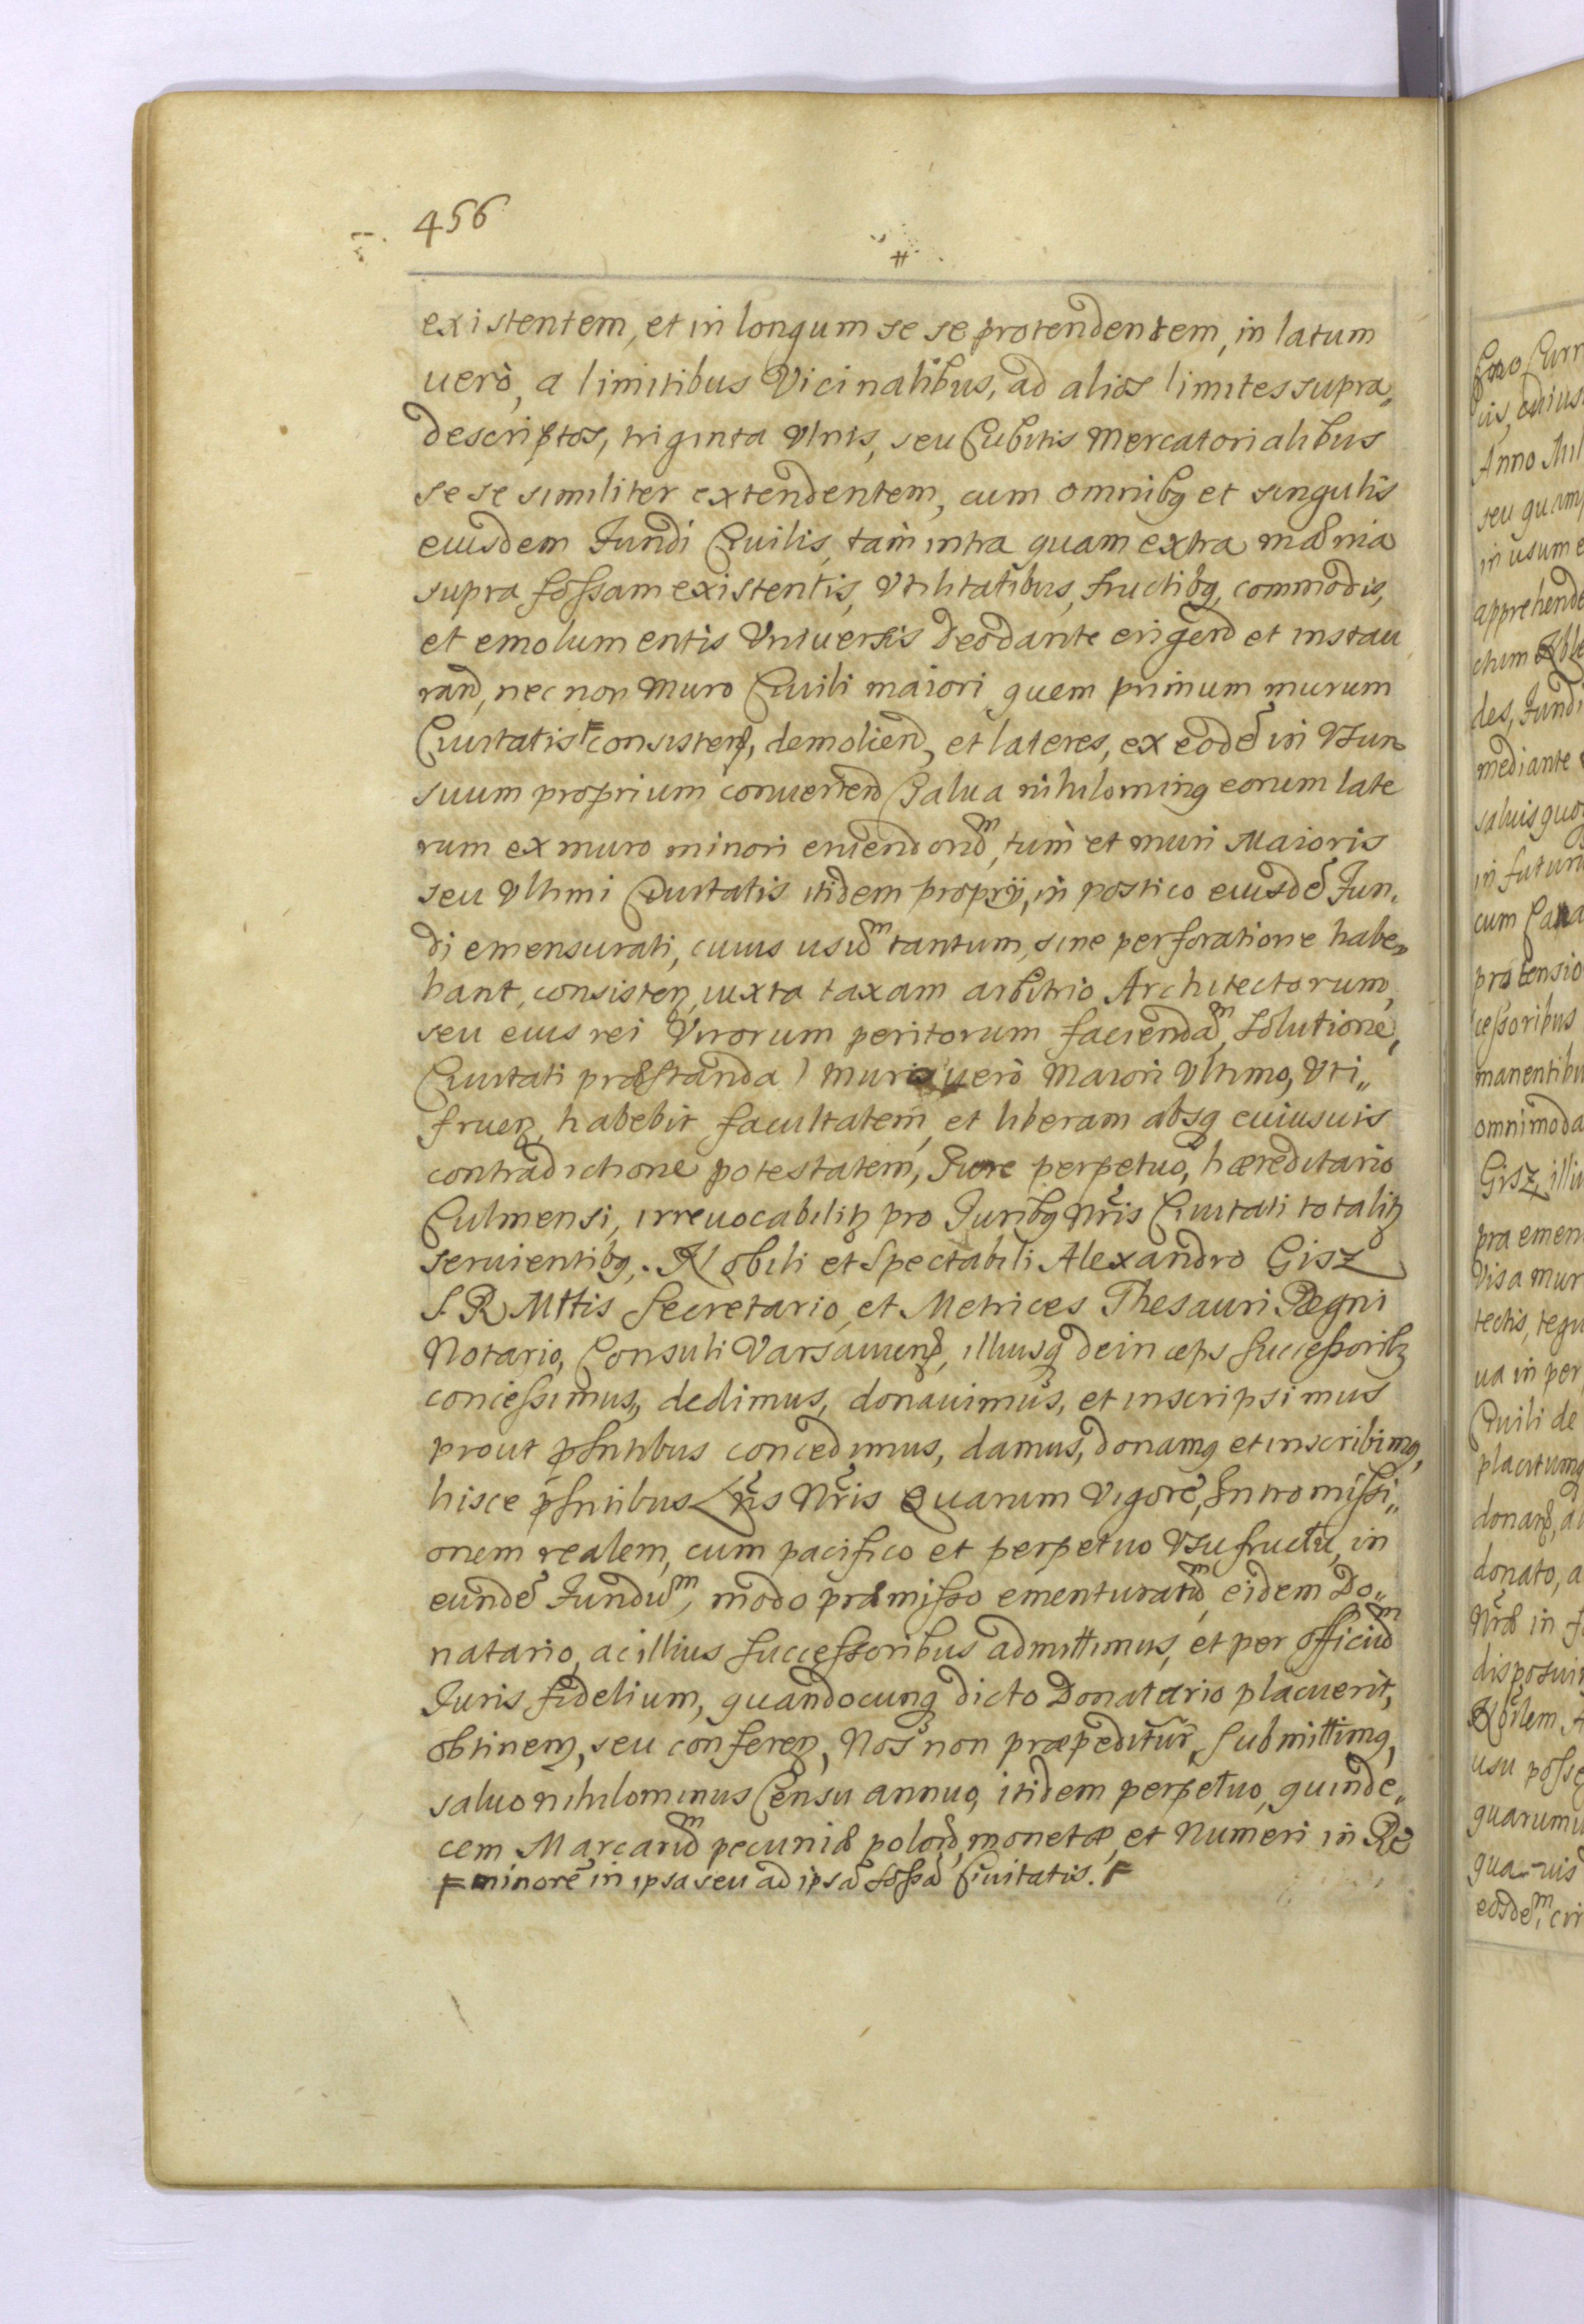 456
existentem, et in longum se se protendentem, in latum
uerò, a limitibus Vicinalibus, ad alios limites supra„
descriptos, triginta Ulnis, seu Cubitis Mercatorialibus
se se similiter extendentem, cum omnibq et singulis
eiusdem Fundi Ciuilis, tam intra quam extra mænia
supra fossam existentis, Vtilitatibus, fructibq, commodis,
et emolumentis Vniuersis Deodante erigend et instau
rand, nec non Muro Ciuili maiori quem primum murum
Ciuitatis F consisten, demoliend, et lateres, ex eodē in Vsum
suum proprium conuertend (Salua nihilominq eorum late
rum ex muro minori eruendorum, tum et muri Maioris
seu Vltimi Ciuitatis itidem proprij, in postico eiusdē Fun„
di emensurati, cuius usum tantum, sine perforatione habe„
bant, consisten, iuxta taxam arbitrio Architectorum,
seu eius rei Virorum peritorum faciendam, solutione,
Ciuitati præstanda) Muri uerò Maiori Vltimo, Vti„
fruen, habebit facultatem, et liberam absq cuiusuis
contradictione potestatem, Iure perpetuo, hæreditario
Culmensi, irreuocabilitr pro Juribq Nr̃is Ciuitati totalitr
seruientibq. Nobili et Spectabili Alexandro Gisz
S. R. Mttis Secretario, et Metrices Thesauri Regni
Notario, Consuli Varsauien, illiusq deinceps Successoribq
concessimus, dedimus, donauimus, et inscripsimus
prout pr̃sntibus concedimus, damus, donamq et inscribimq,
hisce pr̃sntibus Lr̃is Nr̃is Quarum Vigorē, Intromissi„
onem realem, cum pacifico et perpetuo Vsufructu, in
eundē Fundum, modo præmisso ementuratum, eidem Do„
natario, ac illius Successoribus admittimus, et per officium
Iuris fidelium, quandocunq dicto Donatario placuerit,
obtinen, seu conferen, Nos non præpeditur, Submittimq,
saluo nihilominus Censu annuo, itidem perpetuo, quinde„
cem Marcarum pecuniæ polon, monetæ, et Numeri in Re
F minorē in ipsa seu ad ipsā fossā Ciuitatis. F